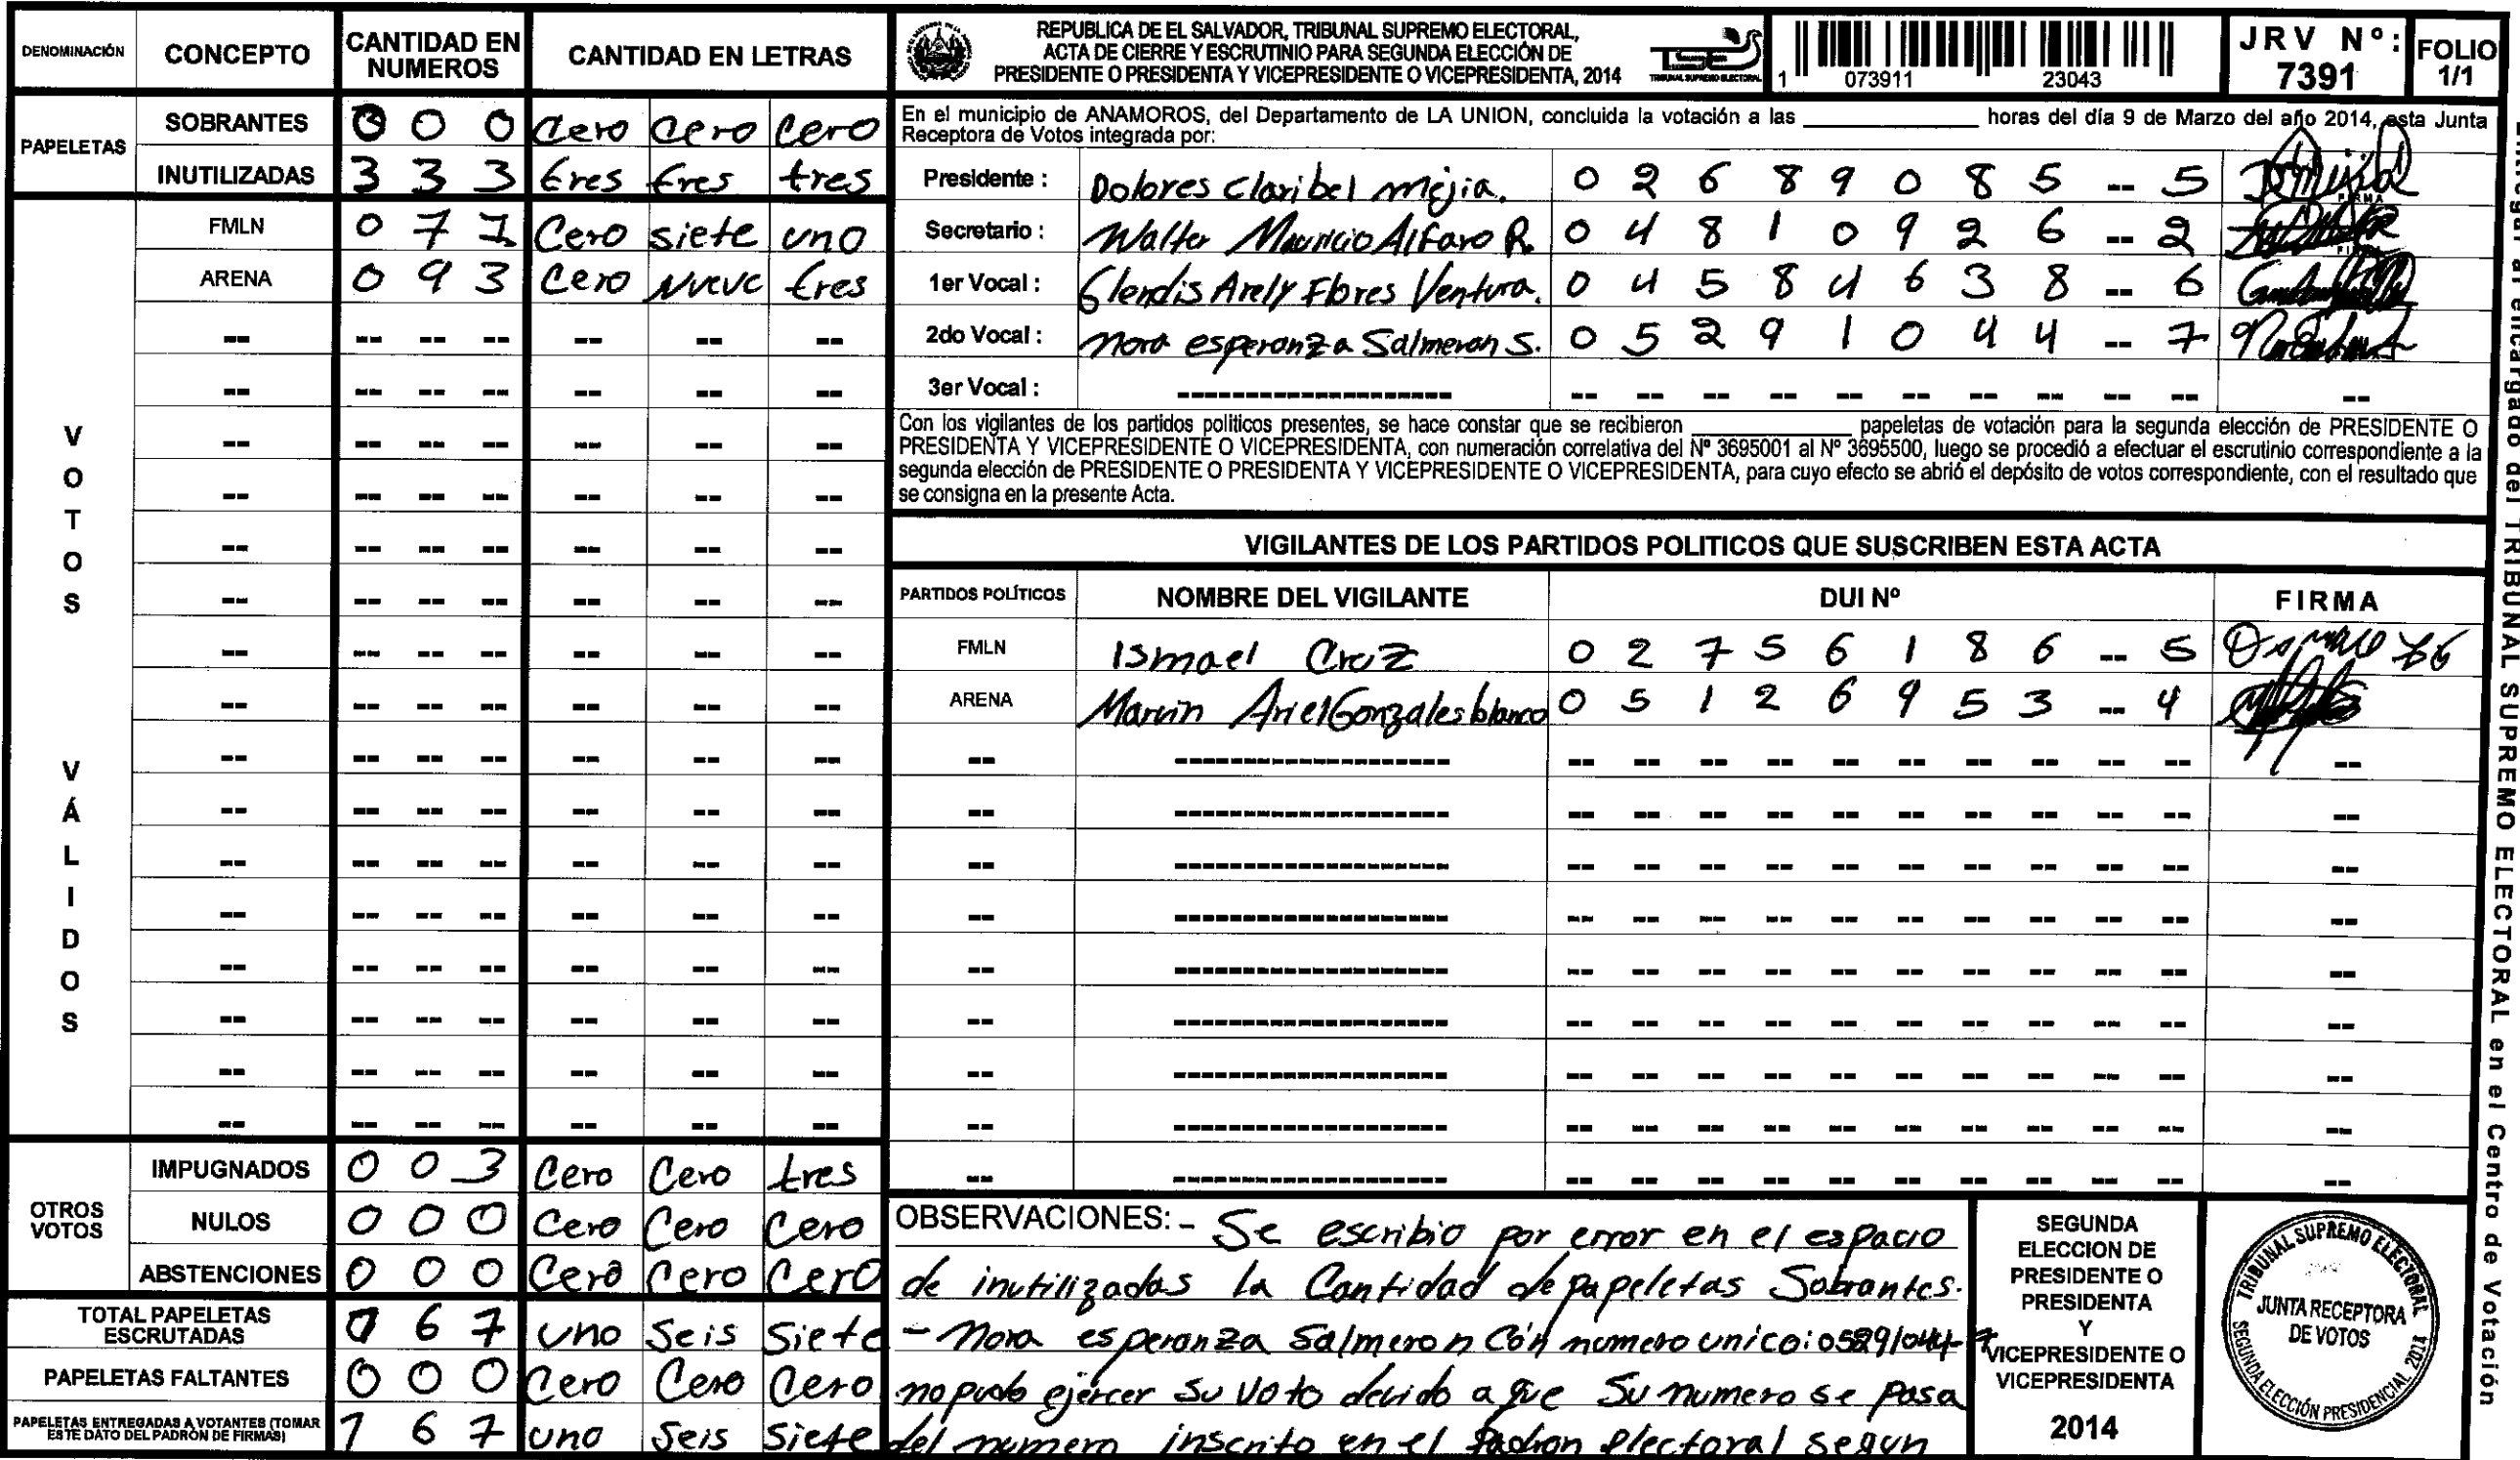 DENOMINACIÓN CONCEPTO CANTIDAD EN NUMEROS CANTIDAD EN LETRAS
PAPELETAS
SOBRANTES 0 0 0 Cero Cero Cero
INUTILIZADAS 3 3 3 tres tres tres
VOTOS VÁLIDOS
FMLN 0 7 1 Cero siete uno
ARENA 0 9 3 Cero Nueve tres
OTROS VOTOS
IMPUGNADOS 0 0 3 Cero Cero tres
NULOS 0 0 0 Cero Cero Cero
ABSTENCIONES 0 0 0 Cero Cero Cero
TOTAL PAPELETAS ESCRUTADAS 1 6 7 uno Seis Siete
PAPELETAS FALTANTES 0 0 0 Cero Cero Cero
PAPELETAS ENTREGADAS A VOTANTES (TOMAR ESTE DATO DEL PADRÓN DE FIRMAS) 1 6 7 uno Seis Siete
REPUBLICA DE EL SALVADOR, TRIBUNAL SUPREMO ELECTORAL,
ACTA DE CIERRE Y ESCRUTINIO PARA SEGUNDA ELECCIÓN DE
PRESIDENTE O PRESIDENTA Y VICEPRESIDENTE O VICEPRESIDENTA, 2014
TSE
TRIBUNAL SUPREMO ELECTORAL
1 073911 23043
JRV Nº: 7391
FOLIO 1/1
En el municipio de ANAMOROS, del Departamento de LA UNION, concluida la votación a las ____________ horas del día 9 de Marzo del año 2014, esta Junta
Receptora de Votos integrada por:
Presidente : Dolores Claribel mejia. 0 2 6 8 9 0 8 5 -- 5
FIRMA
Secretario : Walter Mauricio Alfaro R. 0 4 8 1 0 9 2 6 -- 2
1er Vocal : Glendis Arely Flores Ventura. 0 4 5 8 4 6 3 8 -- 6
2do Vocal : Nora esperanza Salmeron S. 0 5 2 9 1 0 4 4 -- 7
3er Vocal :
Con los vigilantes de los partidos politicos presentes, se hace constar que se recibieron ____________ papeletas de votación para la segunda elección de PRESIDENTE O
PRESIDENTA Y VICEPRESIDENTE O VICEPRESIDENTA, con numeración correlativa del Nº 3695001 al Nº 3695500, luego se procedió a efectuar el escrutinio correspondiente a la
segunda elección de PRESIDENTE O PRESIDENTA Y VICEPRESIDENTE O VICEPRESIDENTA, para cuyo efecto se abrió el depósito de votos correspondiente, con el resultado que
se consigna en la presente Acta.
VIGILANTES DE LOS PARTIDOS POLITICOS QUE SUSCRIBEN ESTA ACTA
PARTIDOS POLÍTICOS NOMBRE DEL VIGILANTE DUI Nº FIRMA
FMLN Ismael Cruz 0 2 7 5 6 1 8 6 -- 5
ARENA Marvin Ariel Gonzales blanco 0 5 1 2 6 9 5 3 -- 4
OBSERVACIONES: - Se escribio por error en el espacio
de inutilizadas la Cantidad de papeletas Sobrantes.
- Nora esperanza Salmeron Con numero unico: 05291044-7
no pudo ejercer su voto devido a que Su numero se pasa
del numero inscrito en el Padron electoral segun
SEGUNDA
ELECCION DE
PRESIDENTE O
PRESIDENTA
Y
VICEPRESIDENTE O
VICEPRESIDENTA
2014
TRIBUNAL SUPREMO ELECTORAL
JUNTA RECEPTORA
DE VOTOS
SEGUNDA ELECCIÓN PRESIDENCIAL 2014
Entregar al encargado del TRIBUNAL SUPREMO ELECTORAL en el Centro de Votación